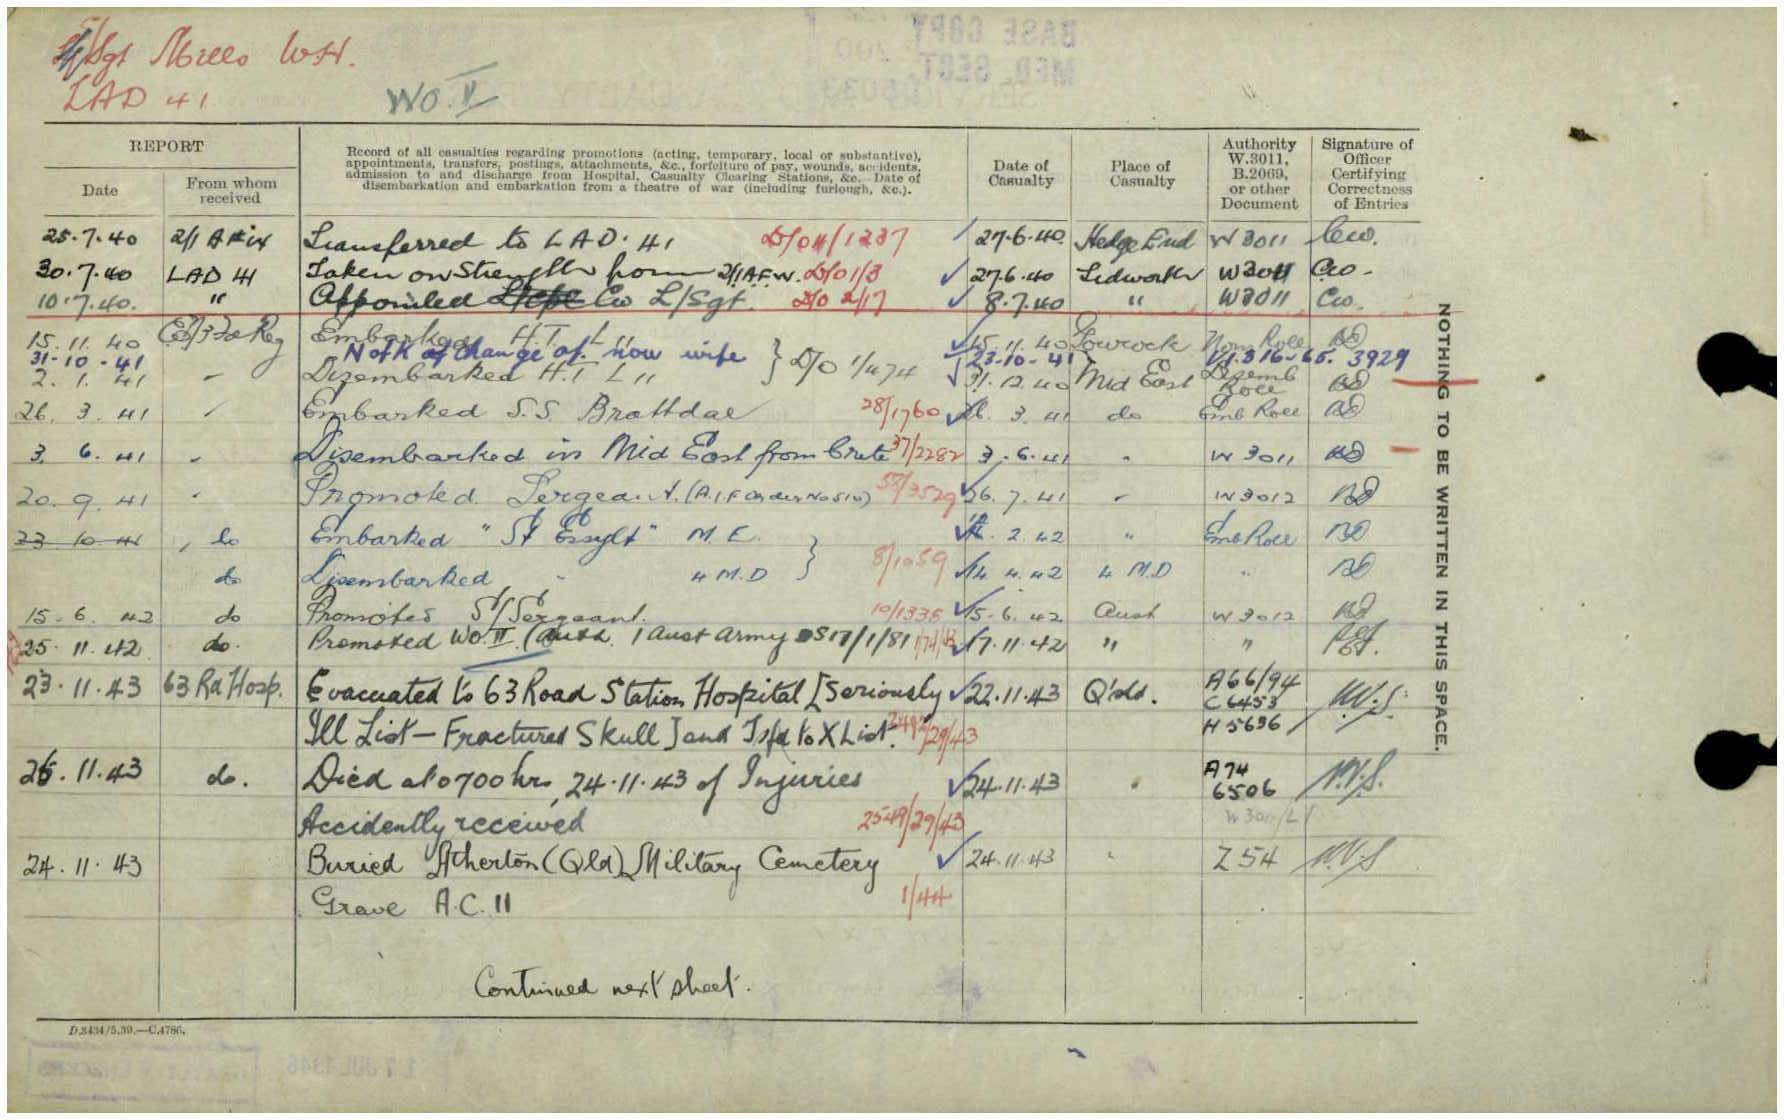 Sgt Mills W.H.
LAD 41
WO. II
BASE COPY
MED. SECT.
REPORT
Date
From whom received
Record of all casualties regarding promotions (acting, temporary, local or substantive),
appointments, transfers, postings, attachments, &c., forfeiture of pay, wounds, accidents,
admission to and discharge from Hospital, Casualty Clearing Stations, &c. Date of
disembarkation and embarkation from a theatre of war (including furlough, &c.).
Date of Casualty
Place of Casualty
Authority W.3011, B.2069, or other Document
Signature of Officer Certifying Correctness of Entries
25.7.40 Transferred to LAD. 41 27.6.40. Hedge End W3011
30.7.40 LAD 41 Taken on Strength from 2/1 A.F.W. D/O 1/3 27.6.40 Tidworth W3011
10.7.40. " Appointed L/Sgt. D/O 2/17 8.7.40 " W3011
15.11.40 Embarked H.T. L 11 15.11.40 Gourock Nom Roll
31-10-41 Notk of change of now wife D/O 1/474 23-10-41 3929
2.1.41 Disembarked H.T L 11 31.12.40 Mid East Disemb Roll
26.3.41 Embarked S.S. Brattdal 28/1760 26.3.41 do Emb Roll
3.6.41 Disembarked in Mid East from Crete 37/2282 3.6.41 " W3011
20.9.41 Promoted Sergeant. (A.I.F Order No 510) 58/3529 26.7.41 W3012
23.10.41 do Embarked "St Essylt" M.E. 2.42 " Emb Roll
do Disembarked " 4 M.D 8/1059 14.4.42 4 M.D "
15.6.42 do Promoted S/Sergeant. 10/1335 15.6.42 Aust W3012
25.11.42 do. Promoted WO.II. (Auth. 1 Aust Army DS17/1/81 17.11.42 " "
23.11.43 63 Rd Hosp. Evacuated to 63 Road Station Hospital [Seriously 22.11.43 Q'sld. A66/94 C6453
Ill List - Fractured Skull] and Tsfd to X List. H5696
26.11.43 do. Died at 0700 hrs, 24.11.43 of Injuries 24.11.43 " A74 6506
Accidently received 2549/29/43
24.11.43 Buried Atherton (Qld) Military Cemetery 24.11.43 " Z54
Grave A.C. 11 1/44
Continued next sheet.
NOTHING TO BE WRITTEN IN THIS SPACE.
D.3434/5.39.—C.4786.